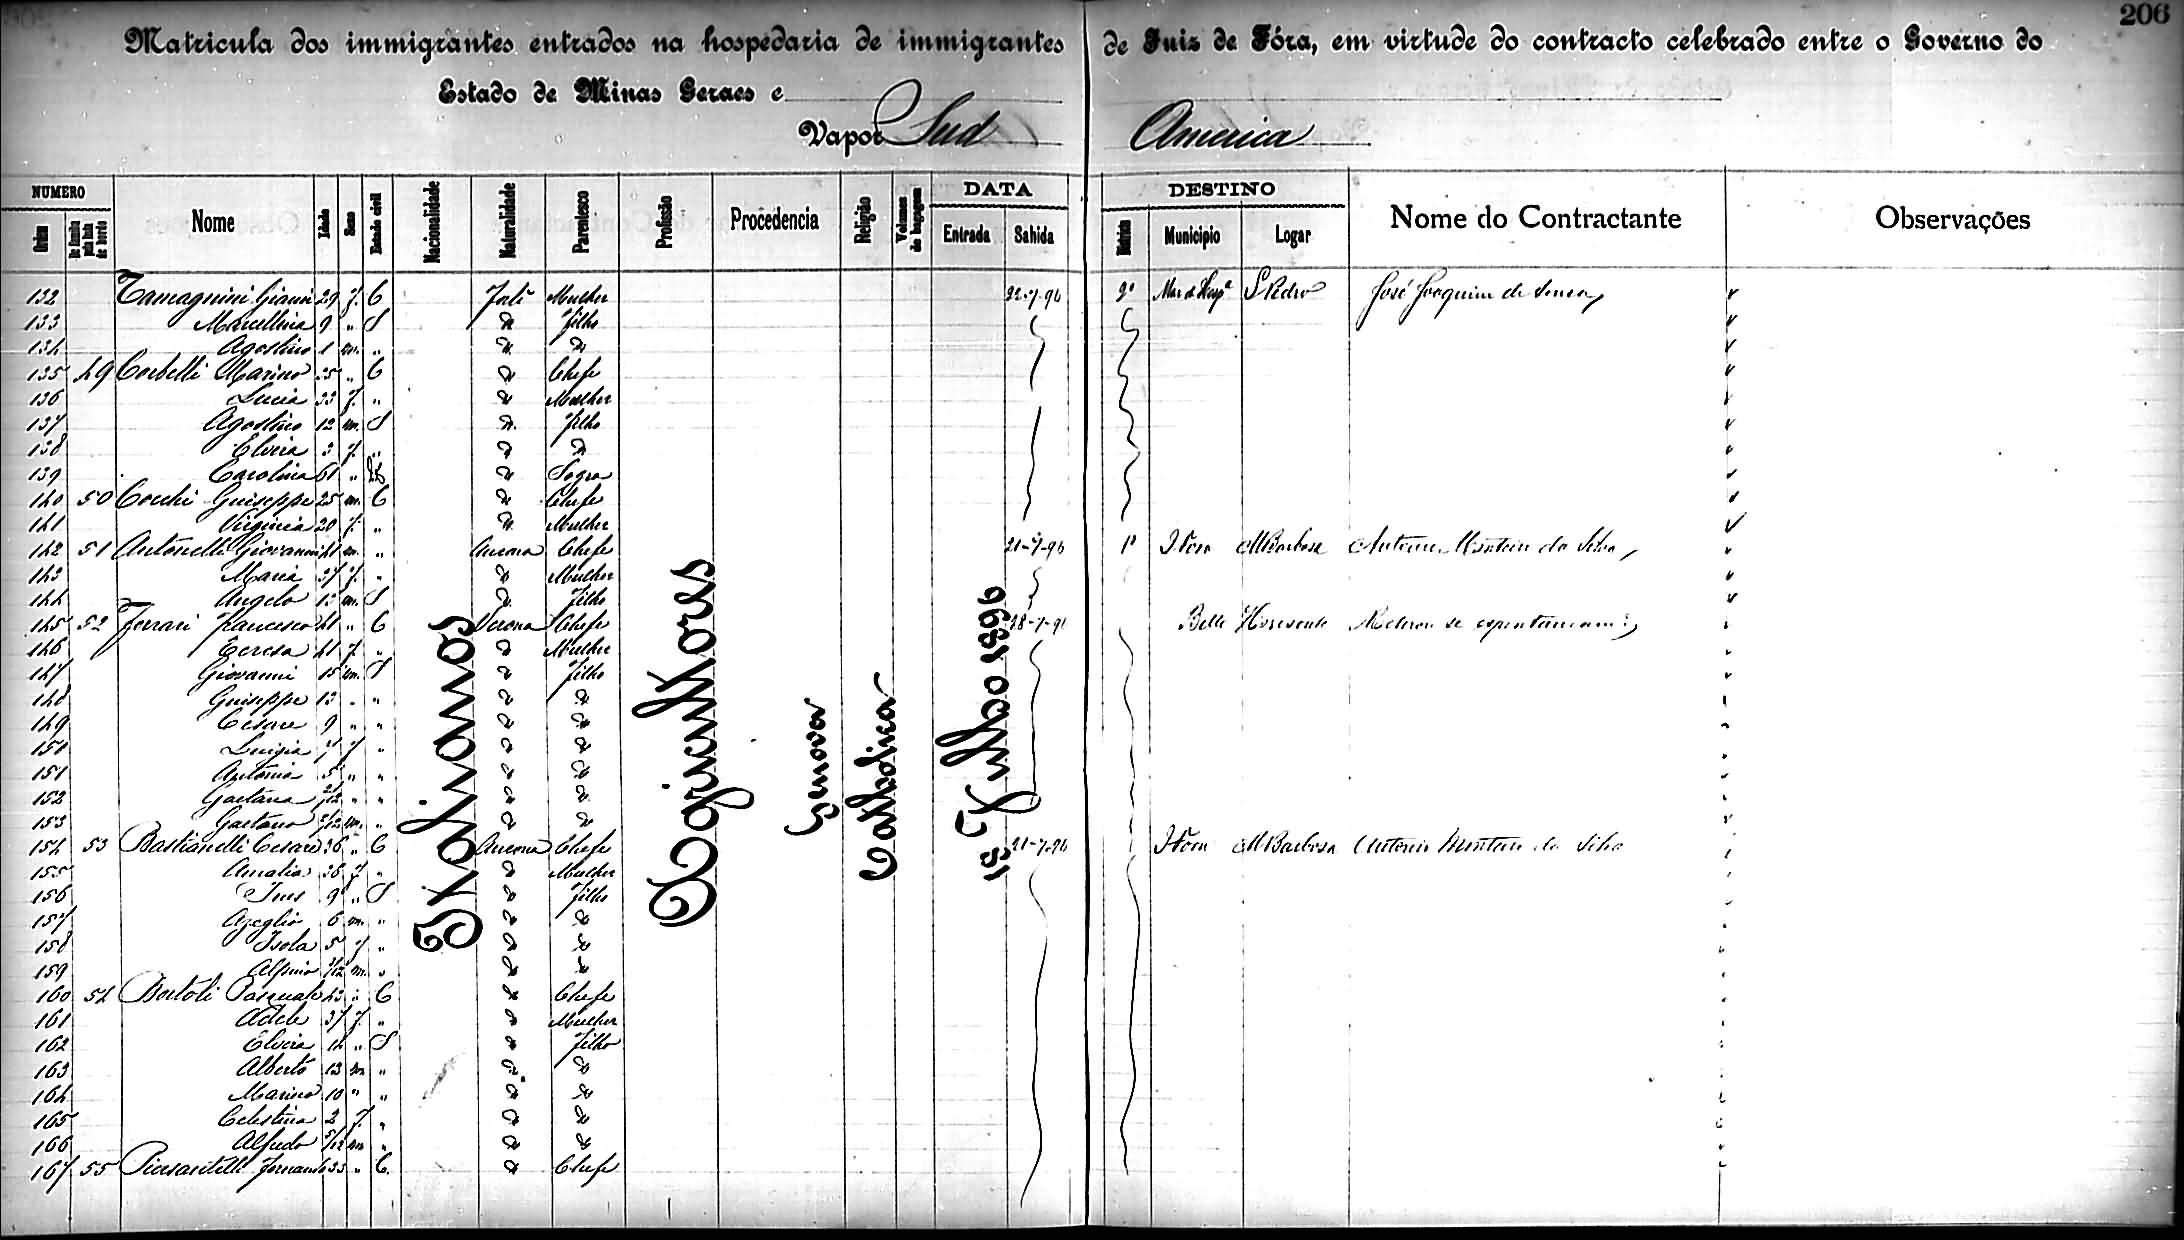 206
Matricula dos immigrantes entrados na hospedaria de immigrantes de Juiz de Fóra, em virtude do contracto celebrado entre o Governo do
Estado de Minas Geraes e
Vapor Sud America
NUMERO DATA DESTINO
Ordem De familia pela lista de bordo Nome Idade Sexo Estado civil Nacionalidade Naturalidade Parentesco Profissão Procedencia Religião Volumes de bagagem Entrada Sahida Districto Municipio Logar Nome do Contractante Observações
Italianos Agricultores Genova Catholica 15 Julho 1896
132 Tamagnini Gianni 29 f. C Forli Mulher 22-7-96 2º Mar de Hespª S Pedro José Joaquim de Souza
133 Marcellina 9 " S " filho
134 Agostino 1 m. " " "
135 49 Corbelli Marino 35 " C " Chefe
136 Lucia 33 f. " " Mulher
137 Agostino 12 m. S " filho
138 Elvira 3 f. " " "
139 Carolina 61 " " Sogra
140 50 Cocchi Guiseppe 25 m. C " Chefe
141 Virginia 20 f. " " Mulher
142 51 Antonelli Giovanni 41 m. " Ancona Chefe 21-7-96 1º J. Fora M Barbosa Antonio Monteiro da Silva
143 Maria 37 f. " " Mulher
144 Angelo 13 m. S " Filho
145 52 Ferrari Francesco 41 " C Verona Chefe 18-7-96 Bello Horisonte Retirou se espontaneamte
146 Teresa 41 f. " " Mulher
147 Giovanni 15 m. S " filho
148 Guiseppe 13 " " " "
149 Cesare 9 " " " "
150 Luigia 7 f " " "
151 Antonia 5 " " " "
152 Gaetana 2/12 " " " "
153 Gaetano 2/12 m. " " "
154 53 Bastianelli Cesare 36 " C Ancona Chefe 21-7-96 J. Fora M Barbosa Antonio Monteiro da Silva
155 Amalia 36 f. " " Mulher
156 Ines 9 " S " filho
157 Azeglio 6 m. " " "
158 Isola 5 f " " "
159 Alpinio m. " " "
160 54 Bortoli Pasquale 43 " C " Chefe
161 Adele 37 f. " " Mulher
162 Elvira 14 " S " filho
163 Alberto 13 m " " "
164 Marino 10 " " " "
165 Celestina 2 f. " " "
166 Alfredo 5/12 m " " "
167 55 Piersantelli Fernando 33 " C. " Chefe